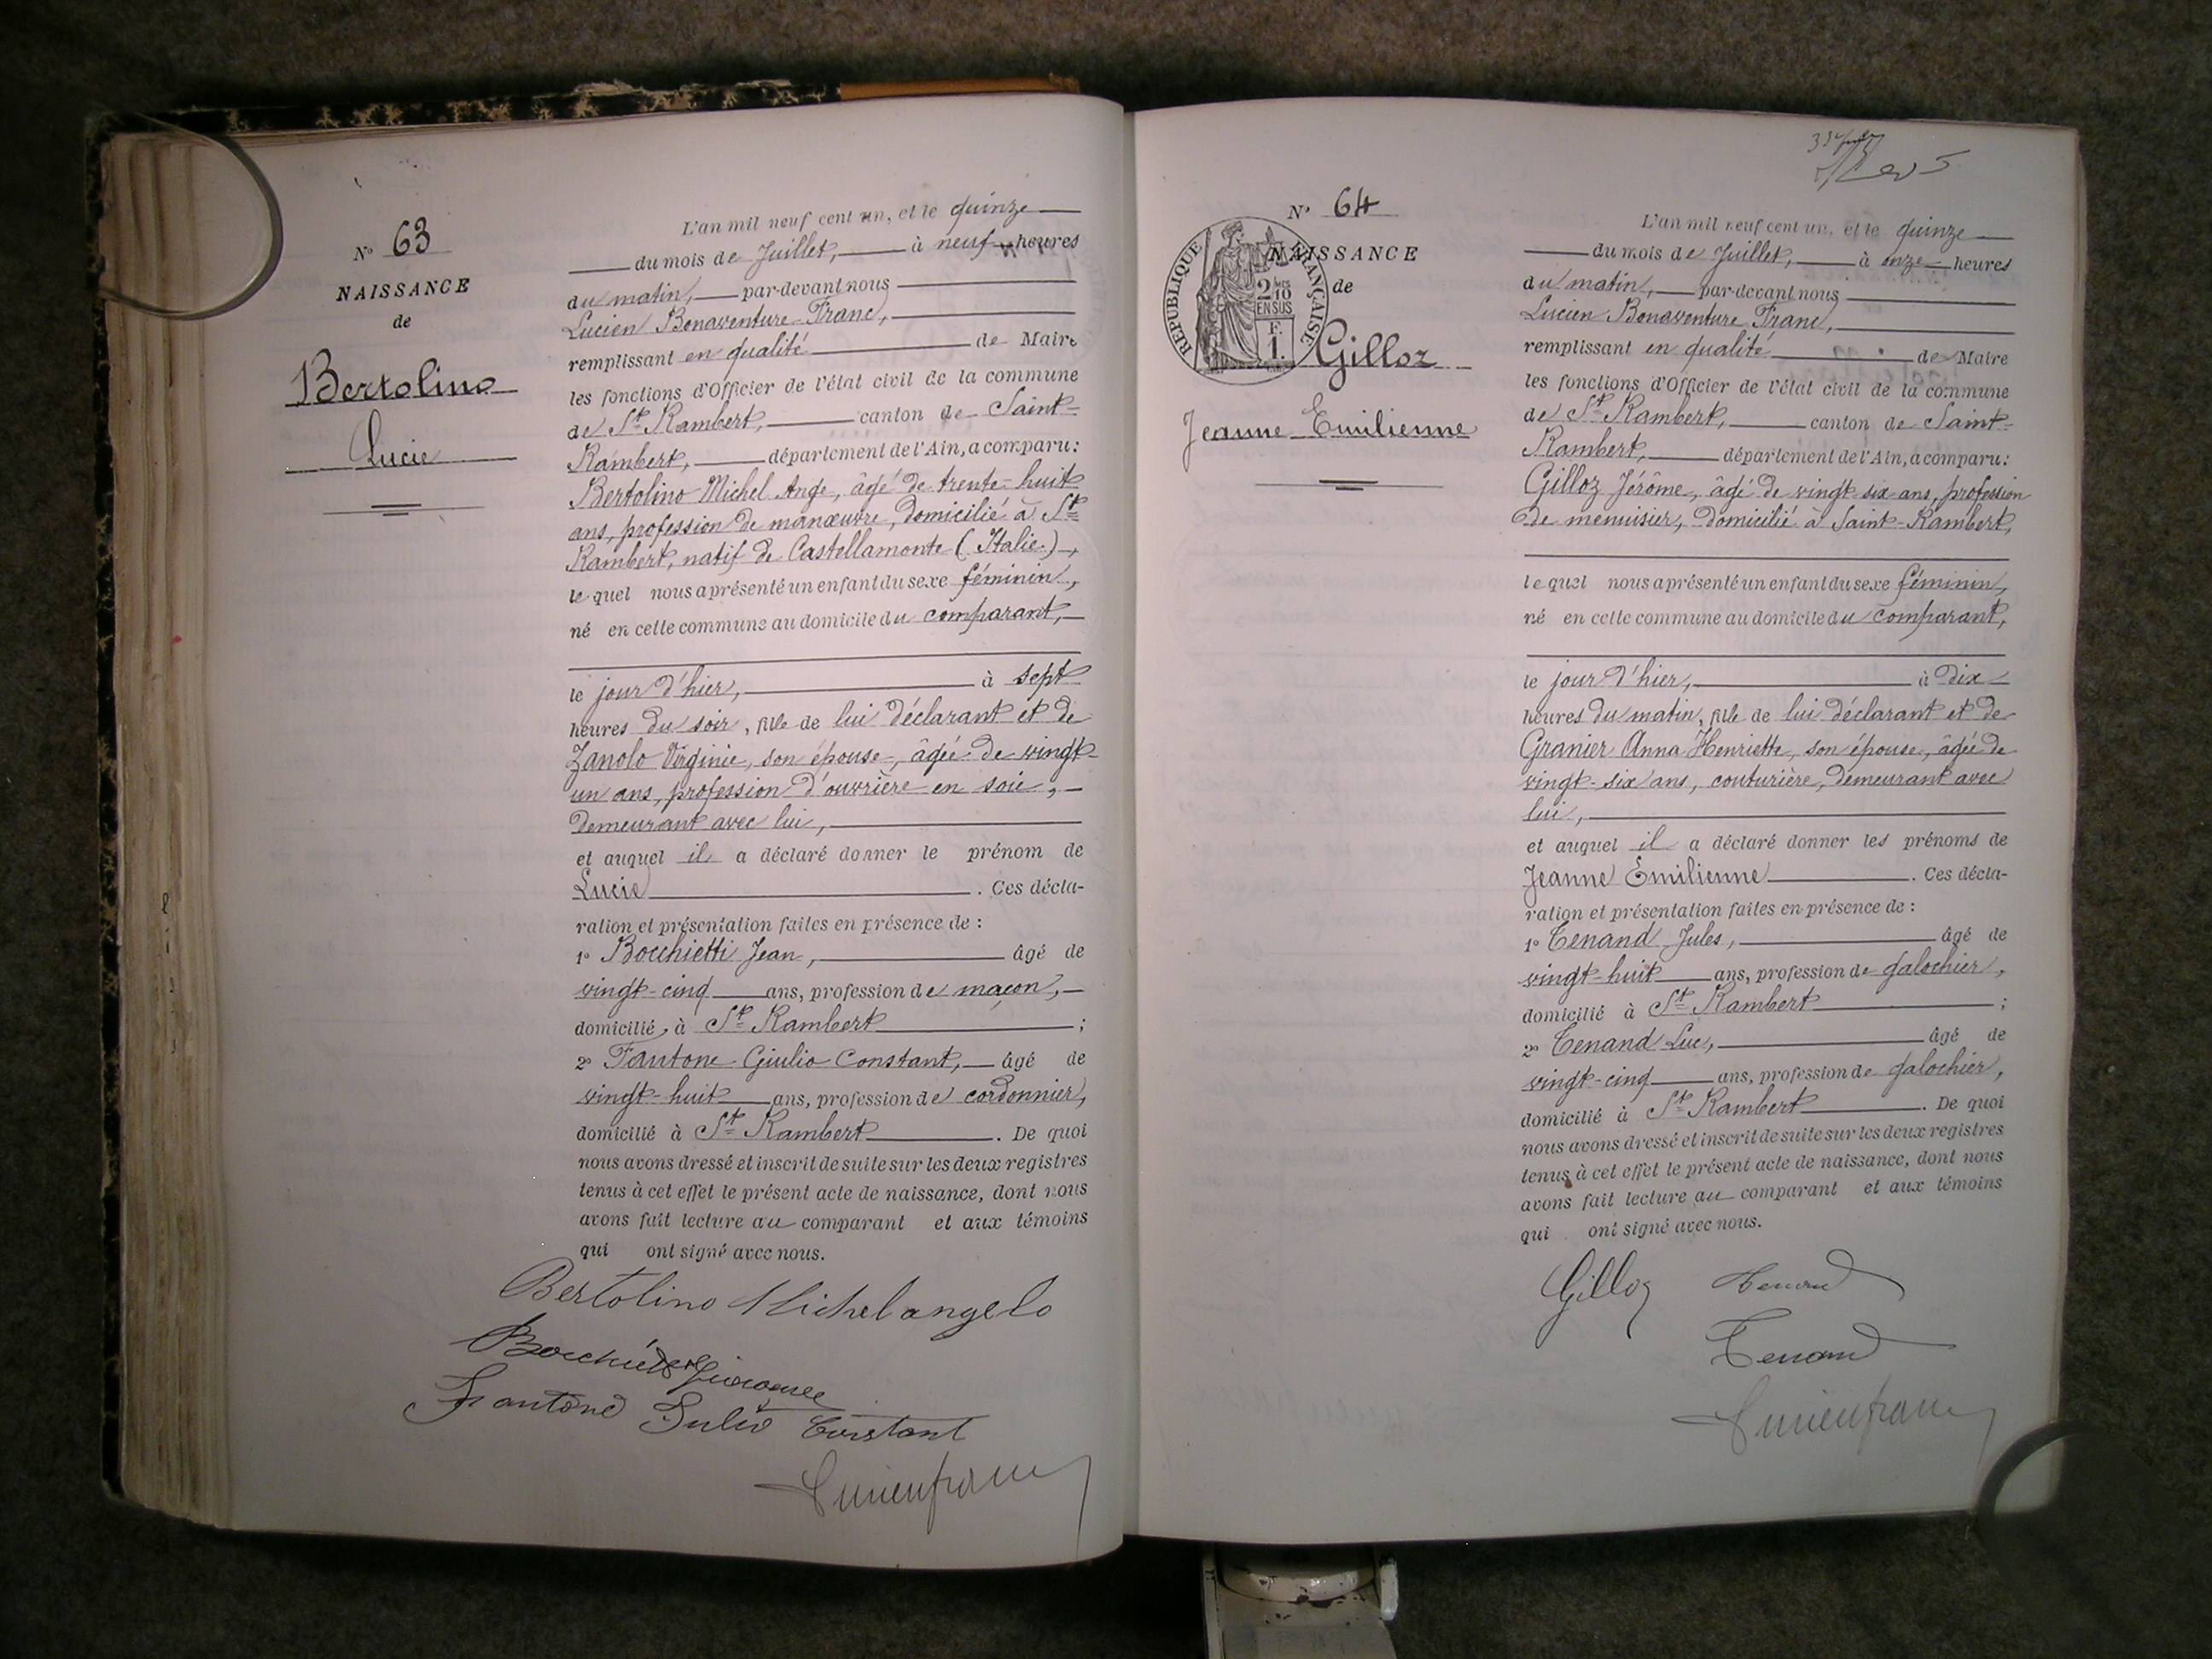 N° 63
NAISSANCE
de
Bertolino
Lucie
L'an mil neuf cent un, et le quinze
du mois de Juillet, à neuf heures
du matin, par-devant nous
Lucien Bonaventure Franc,
remplissant en qualité de Maire
les fonctions d'Officier de l'état civil de la commune
de St Rambert, canton de Saint-
Rambert, département de l'Ain, a comparu:
Bertolino Michel Ange, âgé de trente-huit
ans, profession de manœuvre, domicilié à St
Rambert, natif de Castellamonte (Italie),
le quel nous a présenté un enfant du sexe féminin,
né en cette commune au domicile du comparant,
le jour d'hier, à sept
heures du soir, fille de lui déclarant et de
Zanolo Virginie, son épouse, âgée de vingt-
un ans, profession d'ouvrière en soie,
demeurant avec lui,
et auquel il a déclaré donner le prénom de
Lucie. Ces décla-
ration et présentation faites en présence de :
1° Bocchietti Jean, âgé de
vingt-cinq ans, profession de maçon,
domicilié à St Rambert ;
2° Fantone Giulio Constant, âgé de
vingt-huit ans, profession de cordonnier,
domicilié à St Rambert. De quoi
nous avons dressé et inscrit de suite sur les deux registres
tenus à cet effet le présent acte de naissance, dont nous
avons fait lecture au comparant et aux témoins
qui ont signé avec nous.
Bertolino Michelangelo
Fantone Julio Constant
Lucien franc
N° 64
NAISSANCE
de
RÉPUBLIQUE FRANÇAISE
2 10
EN SUS
F.
1.
Gilloz
Jeanne Emilienne
L'an mil neuf cent un, et le quinze
du mois de Juillet, à onze heures
du matin, par-devant nous
Lucien Bonaventure Franc,
remplissant en qualité de Maire
les fonctions d'Officier de l'état civil de la commune
de St Rambert, canton de Saint-
Rambert, département de l'Ain, a comparu:
Gilloz Jérôme, âgé de vingt-six ans, profession
de menuisier, domicilié à Saint-Rambert,
le quel nous a présenté un enfant du sexe féminin,
né en cette commune au domicile du comparant,
le jour d'hier, à dix
heures du matin, fille de lui déclarant et de
Granier Anna Henriette, son épouse, âgée de
vingt-six ans, couturière, demeurant avec
lui,
et auquel il a déclaré donner les prénoms de
Jeanne Emilienne. Ces décla-
ration et présentation faites en présence de :
1° Tenand Jules, âgé de
vingt-huit ans, profession de galochier,
domicilié à St Rambert ;
2° Tenand Luc, âgé de
vingt-cinq ans, profession de galochier,
domicilié à St Rambert. De quoi
nous avons dressé et inscrit de suite sur les deux registres
tenus à cet effet le présent acte de naissance, dont nous
avons fait lecture au comparant et aux témoins
qui ont signé avec nous.
Gilloz Tenand
Tenand
Lucien franc